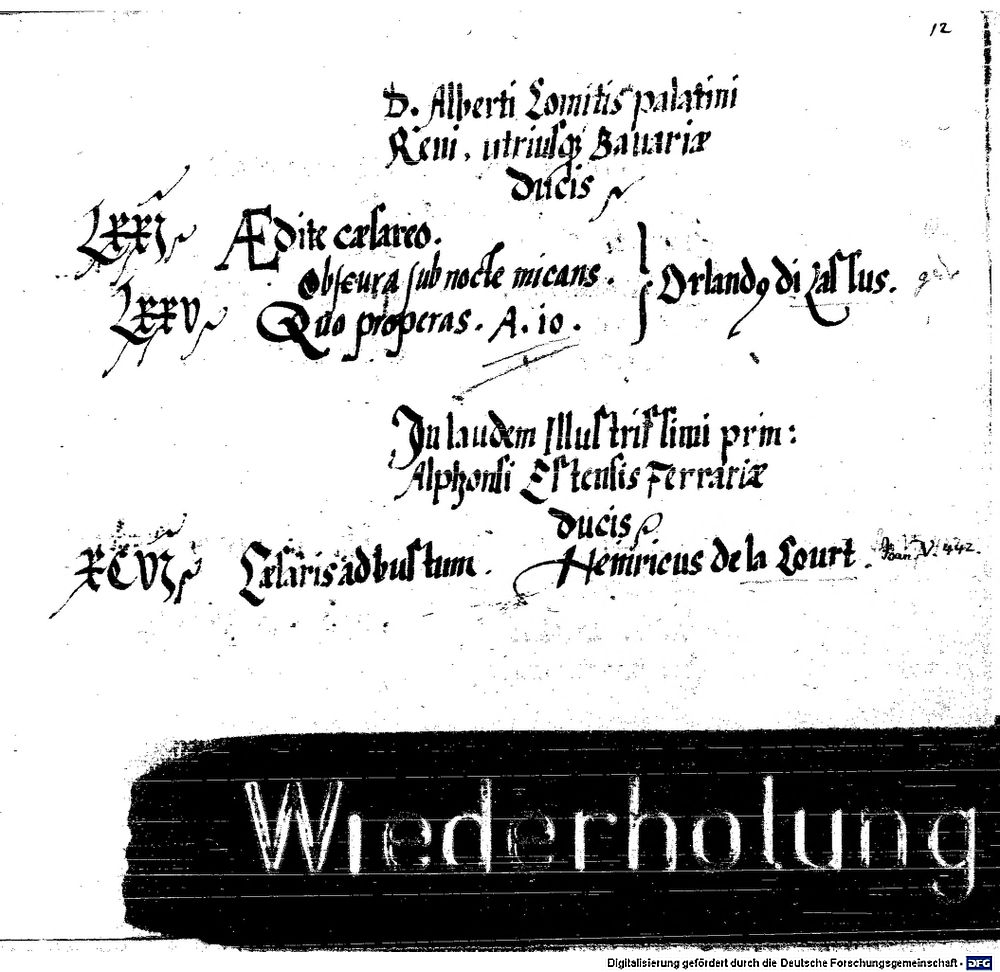 12
D. Alberti Comitis palatini
Reni, utriusq; Bavariæ
ducis
LXXI Ædite cæsareo.
Obscura sub nocte micans. } Orlandꝯ di Lassus.
LXXV Quo properas. A. 10.
In laudem Illustrissimi prin:
Alphonsi Estensis Ferrariæ
ducis
XCVI Cæsaris ad bustum. Henricus de la Court. V. 442.
Wiederholung
Digitalisierung gefördert durch die Deutsche Forschungsgemeinschaft - DFG